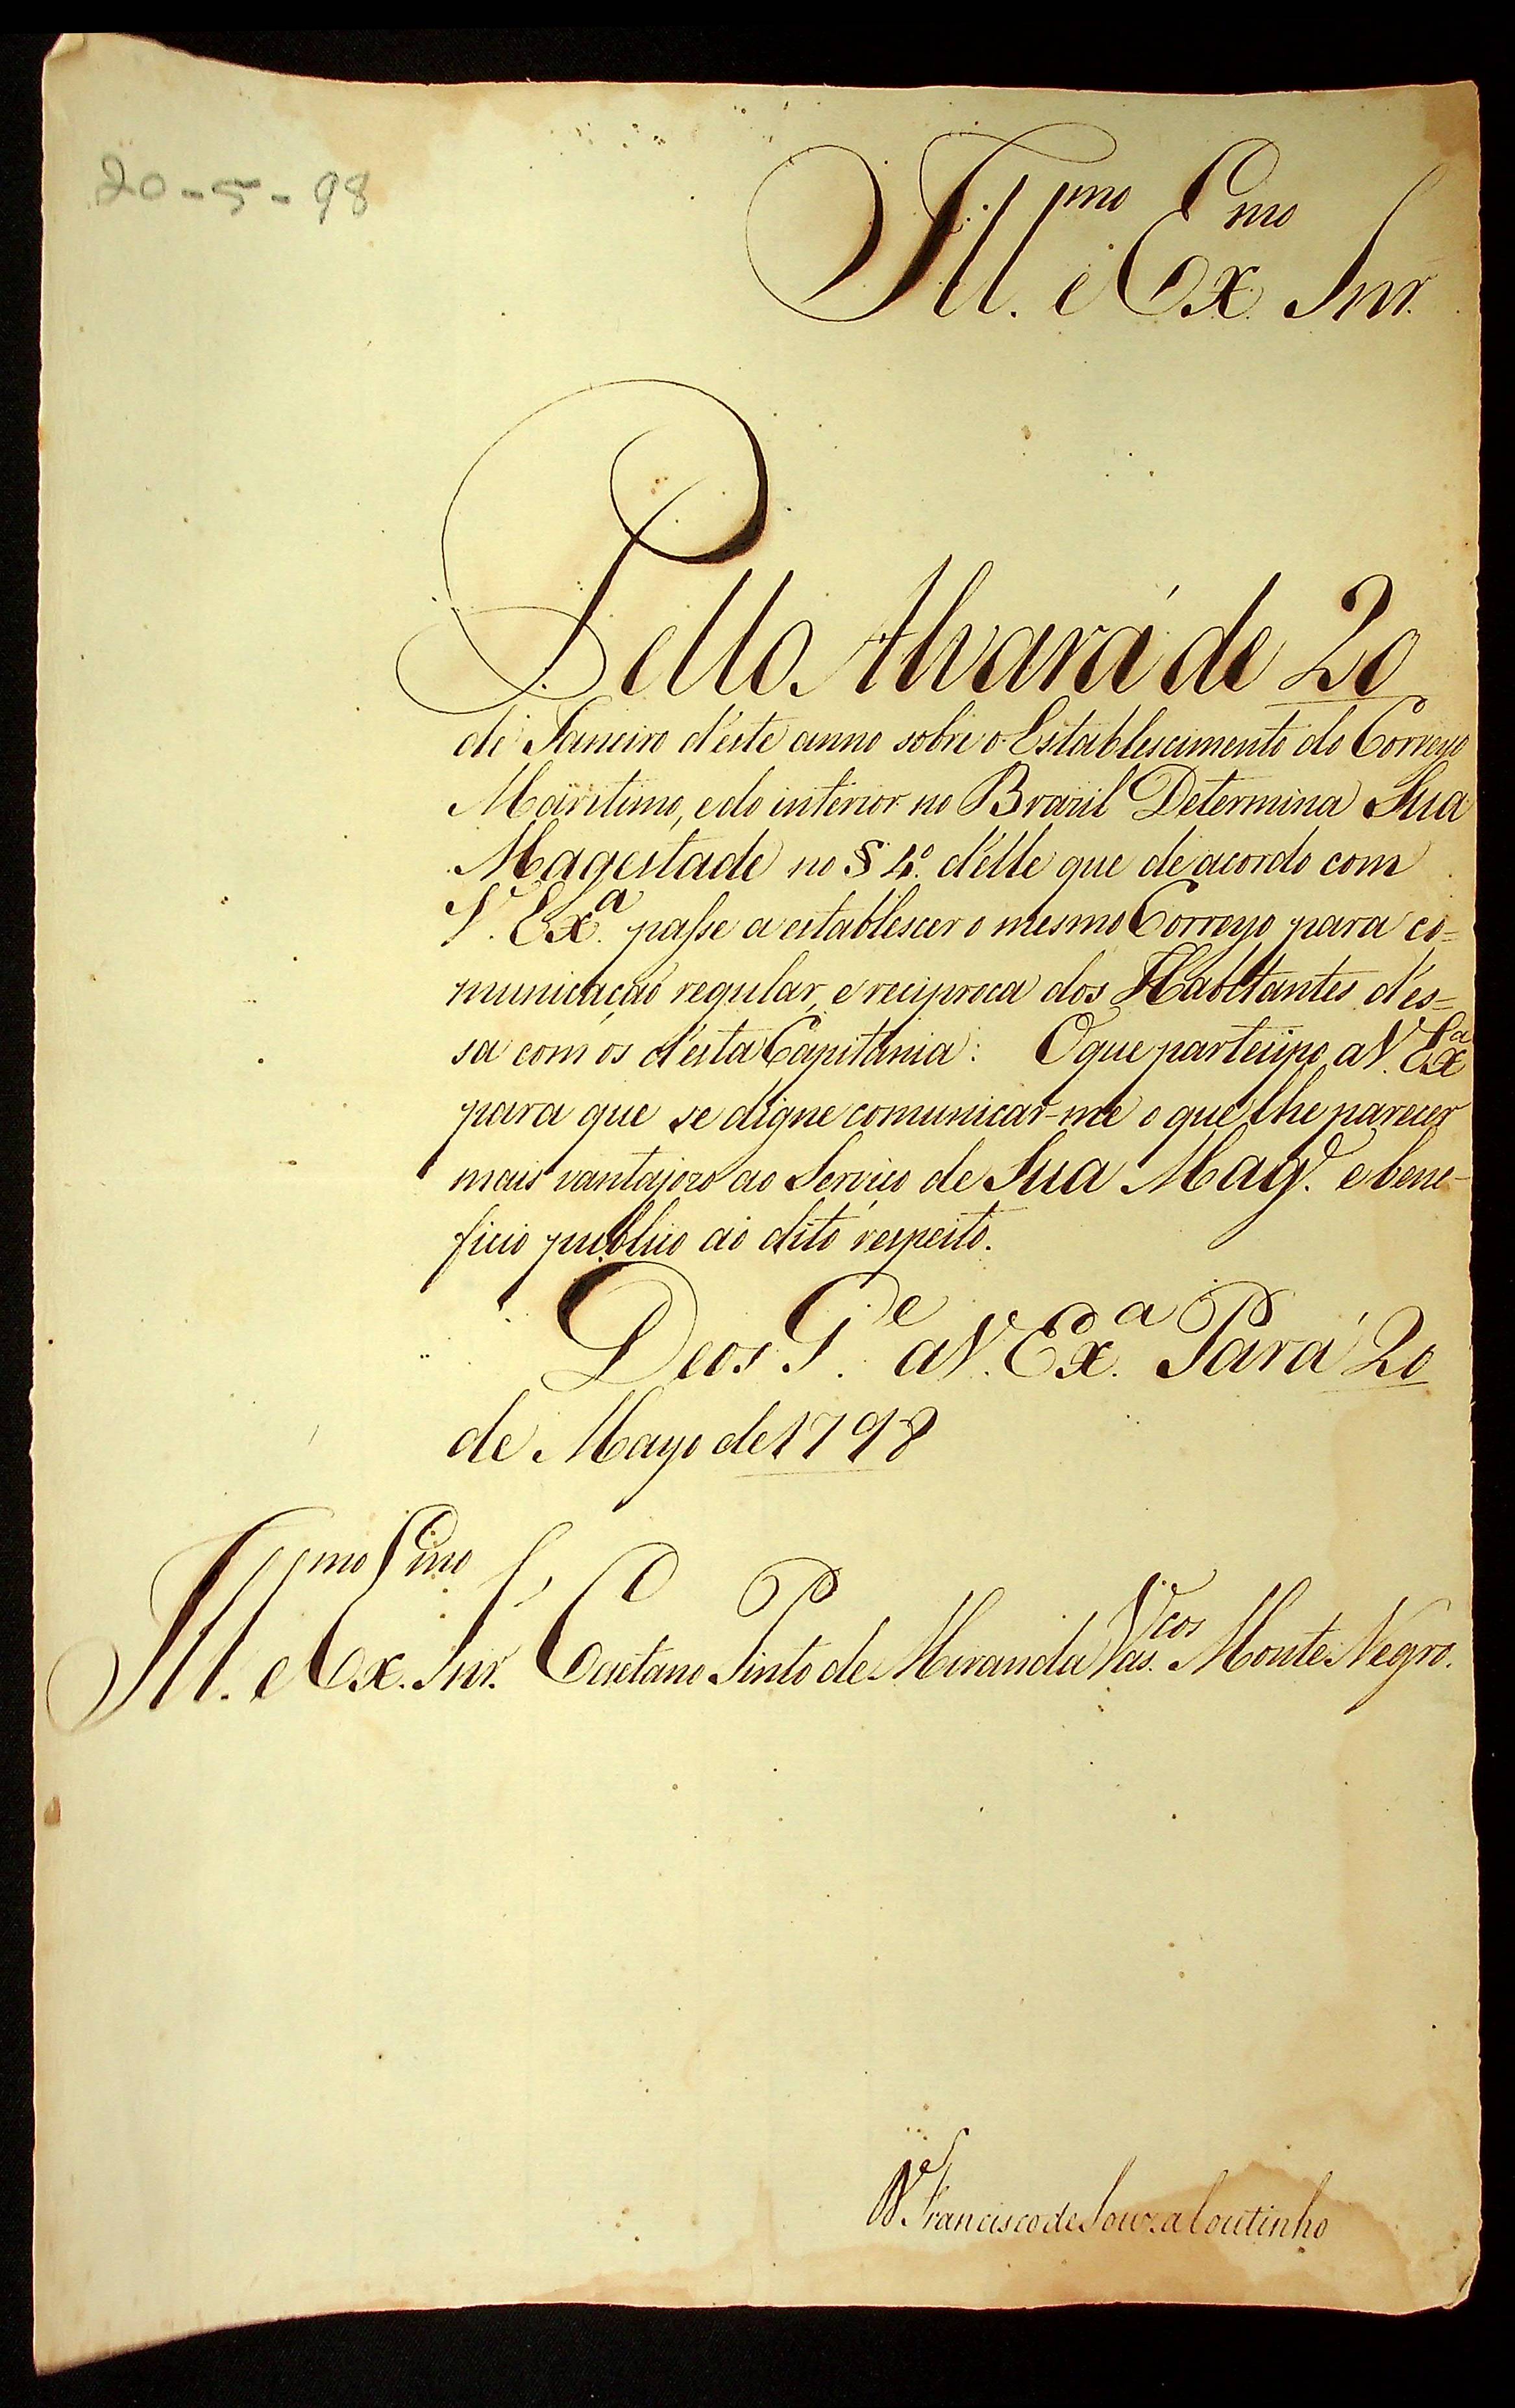 20-5-98
Ill.mo e Ex.mo Snr.
Pello Alvará de 20
de Janeiro d'este anno sobre o Establescimento do Correyo
Maritimo, e do interior no Brazil Determina Sua
Magestade no § 4.º d'elle que de acordo com
V. Ex.a passe a establescer o mesmo Correyo para co=
municação regular, e reciproca dos Habitantes d'es=
sa com os d'esta Capitania: O que participo a V. Ex.a
para que se digne comunicar-me o que lhe parecer
mais vantajozo ao Serviço de Sua Mag.e e bene-
ficio publico ao dito respeito.
Deos G.e a V. Ex.a Pará 20
de Mayo de 1798
Ill.mo e Ex.mo Snr. Caetano Pinto de Miranda Vas.cos Monte Negro.
Francisco de Souza Coutinho